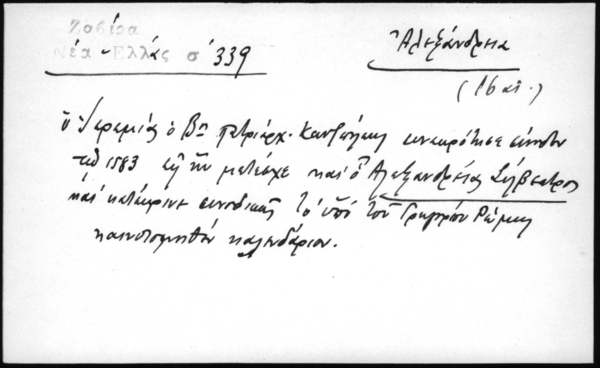 Ζαβίρα
Νέα-Ελλάς σ' 339
Ἀλεξάνδρεια
(16 αἰ.)
ὁ Ἱερεμίας ὁ Βος πατριάρχ. Κωνζπόλεως συνεκρότησε σύνοδον
τῷ 1583 εἰς ἣν μετέσχε καὶ ὁ Ἀλεξανδρείας Σίλβεστρος
καὶ κατέκρινε συνοδικῶς τὸ ὑπὸ τοῦ Γρηγορίου Ρώμης
καινοτομηθὲν καλενδάριον.